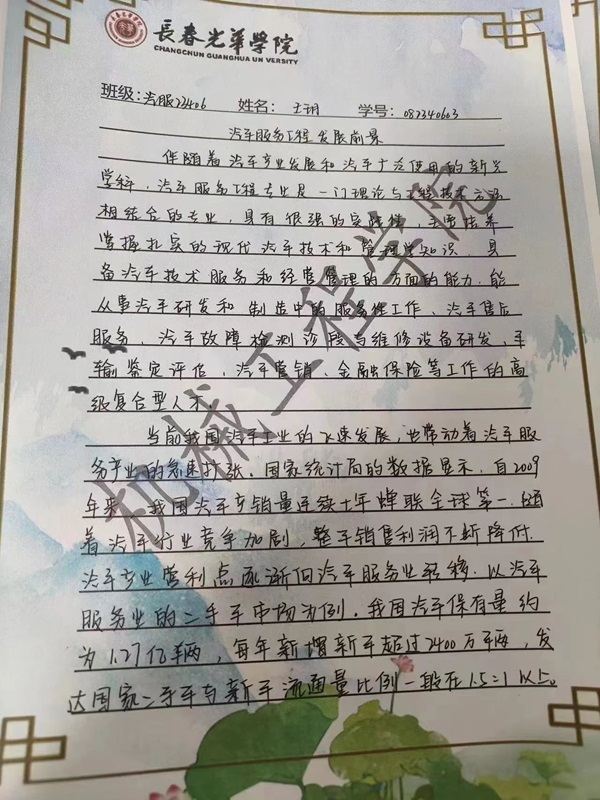 長春光華學院
CHANGCHUN GUANGHUA UN VERSITY
班级:汽服23406 姓名:王玥 学号:082340603
汽车服务工程发展前景
伴随着汽车产业发展和汽车广泛使用的新兴
学科,汽车服务工程专业是一门理论与工程技术
相结合的专业,具有很强的实践性,主要培养
掌握扎实的现代汽车技术和管理学知识,具
备汽车技术服务和经营管理的方面的能力,能
从事汽车研发和制造中的服务性工作、汽车售后
服务、汽车故障检测诊段与维修设备研发,车
输鉴定评估、汽车营销、金融保险等工作的高
级复合型人才
当前我国汽车工业的飞速发展,也带动着汽车服
务产业的急速扩张。国家统计局的数据显示,自2009
年来,我国汽车产销量连续十年蝉联全球第一.随
着汽车行业竞争加剧,整车销售利润不断降低.
汽车产业营利点逐渐向汽车服务业转移.以汽车
服务业的二手车市场为例.我国汽车保有量约
为1.27亿辆,每年新增新车超过2400万辆,发
达国家二手车与新车流通量比例一般在1.5:1以上。
机械工程学院